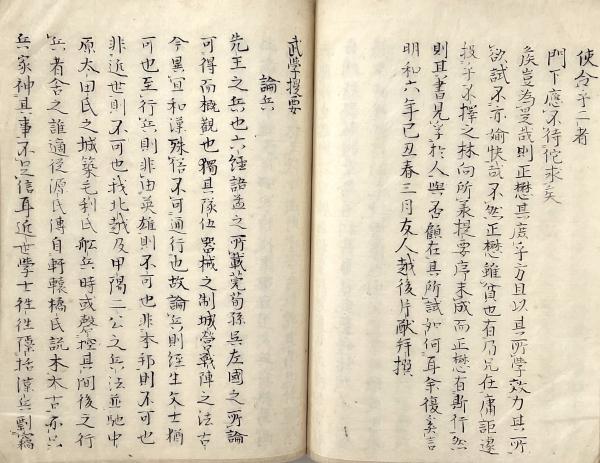 使令乎二者
門下應不待佗求矣
矦豈為是哉則正懋其度乎方且以其所學效力其所
欲試不亦愉快哉不然正懋雖貧也有乃兄在庸詎遑
投乎不擇之林向所著提要序未成而正懋有斯行然
則其書見孚於人與否顧在其所試如何耳余復奚言
明和六年己丑春三月友人越後片猷拜撰
武學提要
論兵
先王之兵也六經語孟之所載荒荀孫吳左國之所論
可得而概觀也獨其隊伍器械之制城營戰陣之法古
今異宜和漢殊稽不可通行也故論兵則經生文士猶
可也至行兵則非由英雄則不可也非本邦則不可也
非近世則不可也我北越及甲陽二公之兵法並馳中
原太田氏之城築毛利氏舩兵時或罄控其間後之行
兵者舍之誰適從源氏傳自軒轅橘氏説木太古亦只
兵家神其事不足信耳近世學士往往隱括漢兵剽竊